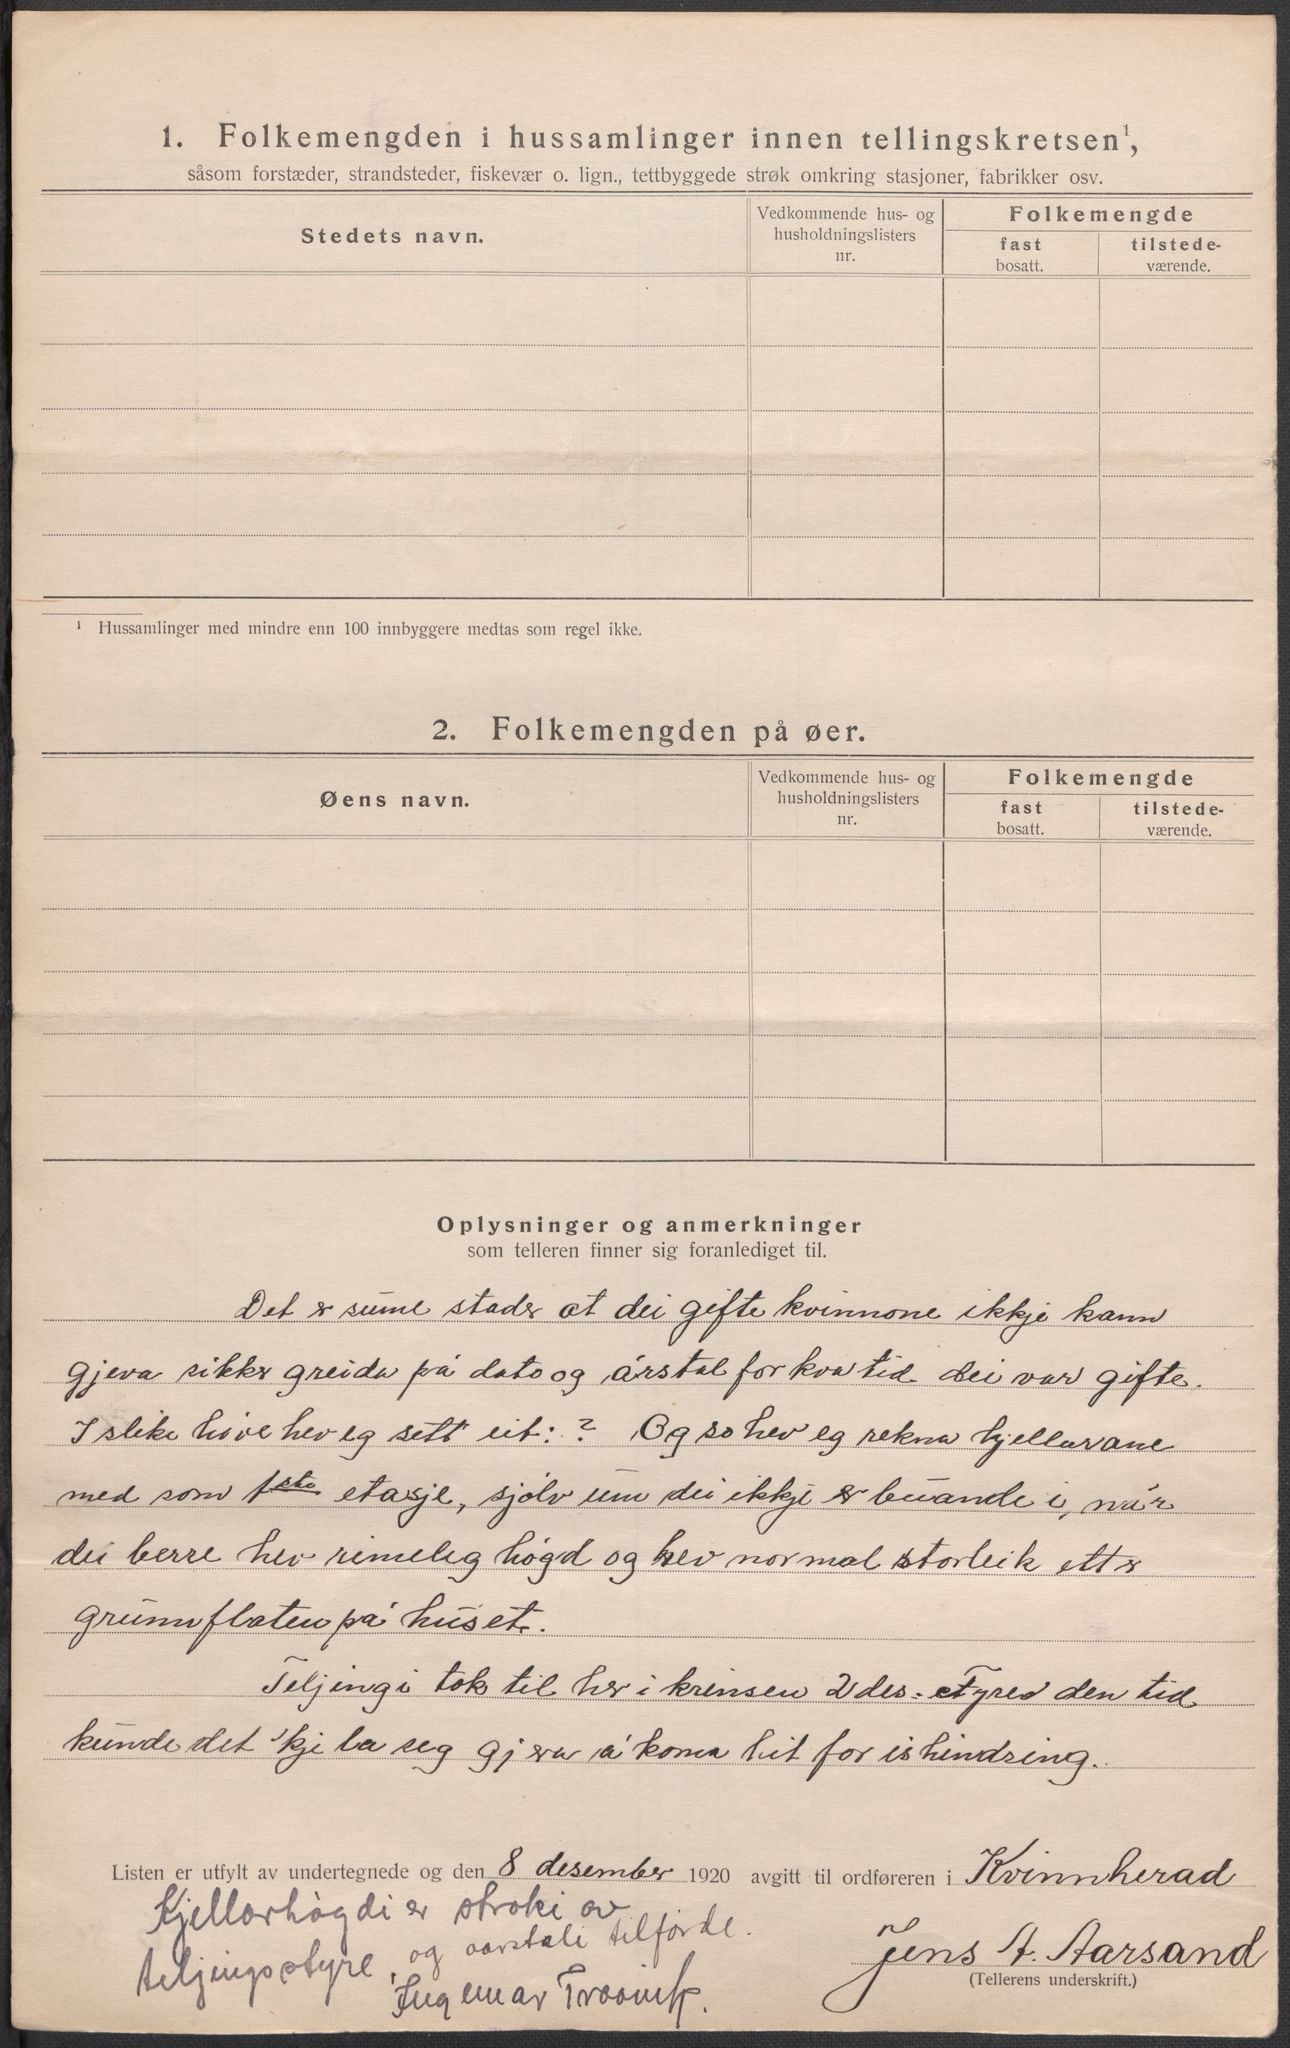 1. Folkemengden i hussamlinger innen tellingskretsen¹,
såsom forstæder, strandsteder, fiskevær o. lign., tettbyggede strøk omkring stasjoner, fabrikker osv.
Stedets navn.
Vedkommende hus- og
husholdningslisters
nr.
Folkemengde
fast
bosatt.
tilstede-
værende.
¹ Hussamlinger med mindre enn 100 innbyggere medtas som regel ikke.
2. Folkemengden på øer.
Øens navn.
Vedkommende hus- og
husholdningslisters
nr.
Folkemengde
fast
bosatt.
tilstede-
værende.
Oplysninger og anmerkninger
som telleren finner sig foranlediget til.
Det er sume stader at dei gifte kvinnone ikkje kann
gjeva sikker greida på dato og årstal for kva tid dei var gifte.
I slike høve hev eg sett eit: ? Og so hev eg rekna kjellarane
med som 1ste etasje, sjølv um dei ikkje er buande i, når
dei berre hev rimeleg høgd og hev normal storleik etter
grunnflaten på huset.
Teljingi tok til her i krinsen 2 des. Fyre den tid
kunde det 'kje la seg gjera å koma hit for ishindring.
Listen er utfylt av undertegnede og den 8 desember 1920 avgitt til ordføreren i Kvinnherad
Kjellarhøgdi er stroki av
teljingsstyre, og aarstali tilførde.
Ingemar
Jens A. Aarsand
(Tellerens underskrift.)